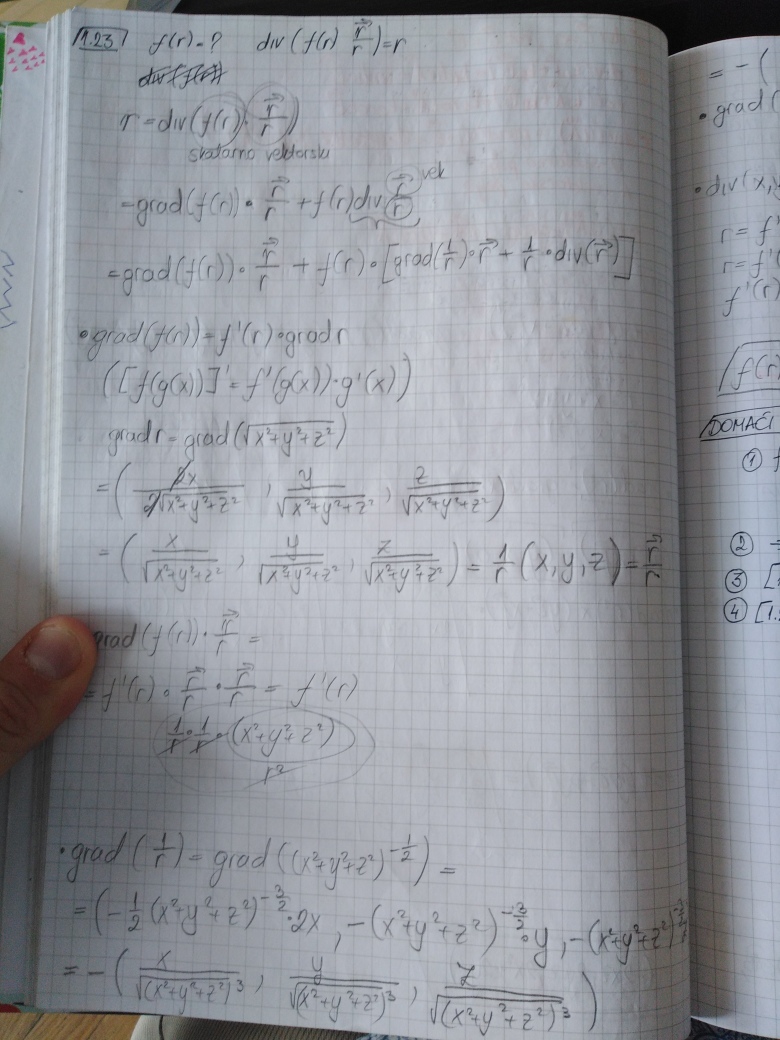 1.23 f(r)=? div(f(r) \vec{r}/r)=r
r=div(f(r)·\vec{r}/r)
skalarno vektorski
=grad(f(r))·\vec{r}/r+f(r)div \vec{r}/r vek
r
=grad(f(r))·\vec{r}/r+f(r)·[grad(1/r)·\vec{r}+1/r·div(\vec{r})]
•grad(f(r))=f'(r)·gradr
([f(g(x))]'=f'(g(x))·g'(x))
gradr=grad(√(x²+y²+z²))
=(2x/2√(x²+y²+z²), y/√(x²+y²+z²), z/√(x²+y²+z²))
=(x/√(x²+y²+z²), y/√(x²+y²+z²), z/√(x²+y²+z²))=1/r(x,y,z)=\vec{r}/r
grad(f(r))·\vec{r}/r=
=f'(r)·\vec{r}/r·\vec{r}/r=f'(r)
1/r·1/r·(x²+y²+z²)
r²
•grad(1/r)=grad((x²+y²+z²)^{-1/2})=
=(-1/2(x²+y²+z²)^{-3/2}·2x, -(x²+y²+z²)^{-3/2}·y, -(x²+y²+z²)^{-3/2}
=-(x/√(x²+y²+z²)³, y/√(x²+y²+z²)³, z/√(x²+y²+z²)³)
=-(
•grad(
•div(x,
r=f'
r=f'(
f'(r)
f(r)
DOMAĆI
①
②
③ [
④ [1.